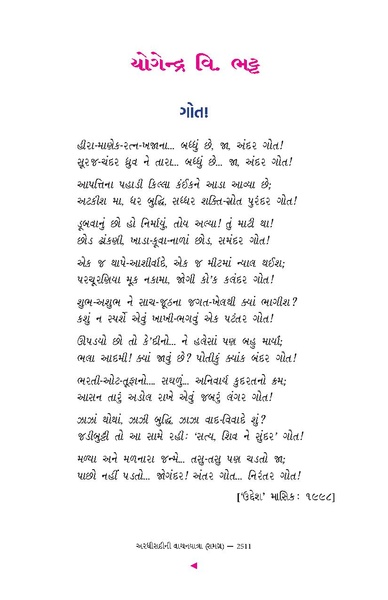 યોગેન્દ્ર વિ. ભટ્ટ
ગોત!
હીરા-માણેક-રત્ન-ખજાના... બધ્ધું છે, જા, અંદર ગોત!
સૂરજ-ચંદર ધ્રુવ ને તારા... બધ્ધું છે... જા, અંદર ગોત!
આપત્તિના પહાડી કિલ્લા કંઈકને આડા આવ્યા છે;
અટકીશ મા, ધર બુદ્ધિ, સધ્ધર શક્તિ-સ્રોત પુરંદર ગોત!
ડૂબવાનું છો હો નિર્માયું, તોય અલ્યા! તું માટી થા!
છોડ ઢાંકણી, ખાડા-કૂવા-નાળાં છોડ, સમંદર ગોત!
એક જ થાપે-આશીર્વાદે, એક જ મીટમાં ન્યાલ થઈશ;
પરચૂરણિયા મૂક નકામા, જોગી કો'ક કલંદર ગોત!
શુભ-અશુભ ને સાચ-જૂઠના જગત-ખેલથી ક્યાં ભાગીશ?
કશું ન સ્પર્શે એવું ખાખી-ભગવું એક પટંતર ગોત!
ઊપડયો છો તો કે'દીનો... ને હલેસાં પણ બહુ માર્યાં;
ભલા આદમી! ક્યાં જાવું છે? પોતીકું ક્યાંક બંદર ગોત!
ભરતી-ઓટ-તૂફાનો.... સઘળું... અનિવાર્ય કુદરતનો ક્રમ;
આસન તારું અડોલ રાખે એવું જબરું લંગર ગોત!
ઝાઝાં થોથાં, ઝાઝી બુદ્ધિ, ઝાઝા વાદ-વિવાદે શું?
જડીબુટ્ટી તો આ સામે રહી: ‘સત્ય, શિવ ને સુંદર' ગોત!
મળ્યા અને મળનારા જન્મે... તસુ-તસુ પણ ચડતો જા;
પાછો નહીં પડતો... જોગંદર! અંતર ગોત... નિરંતર ગોત!
['ઉદ્દેશ' માસિક: ૧૯૯૮]
અરધીસદીની વાચનયાત્રા (સમગ્ર) — 2511